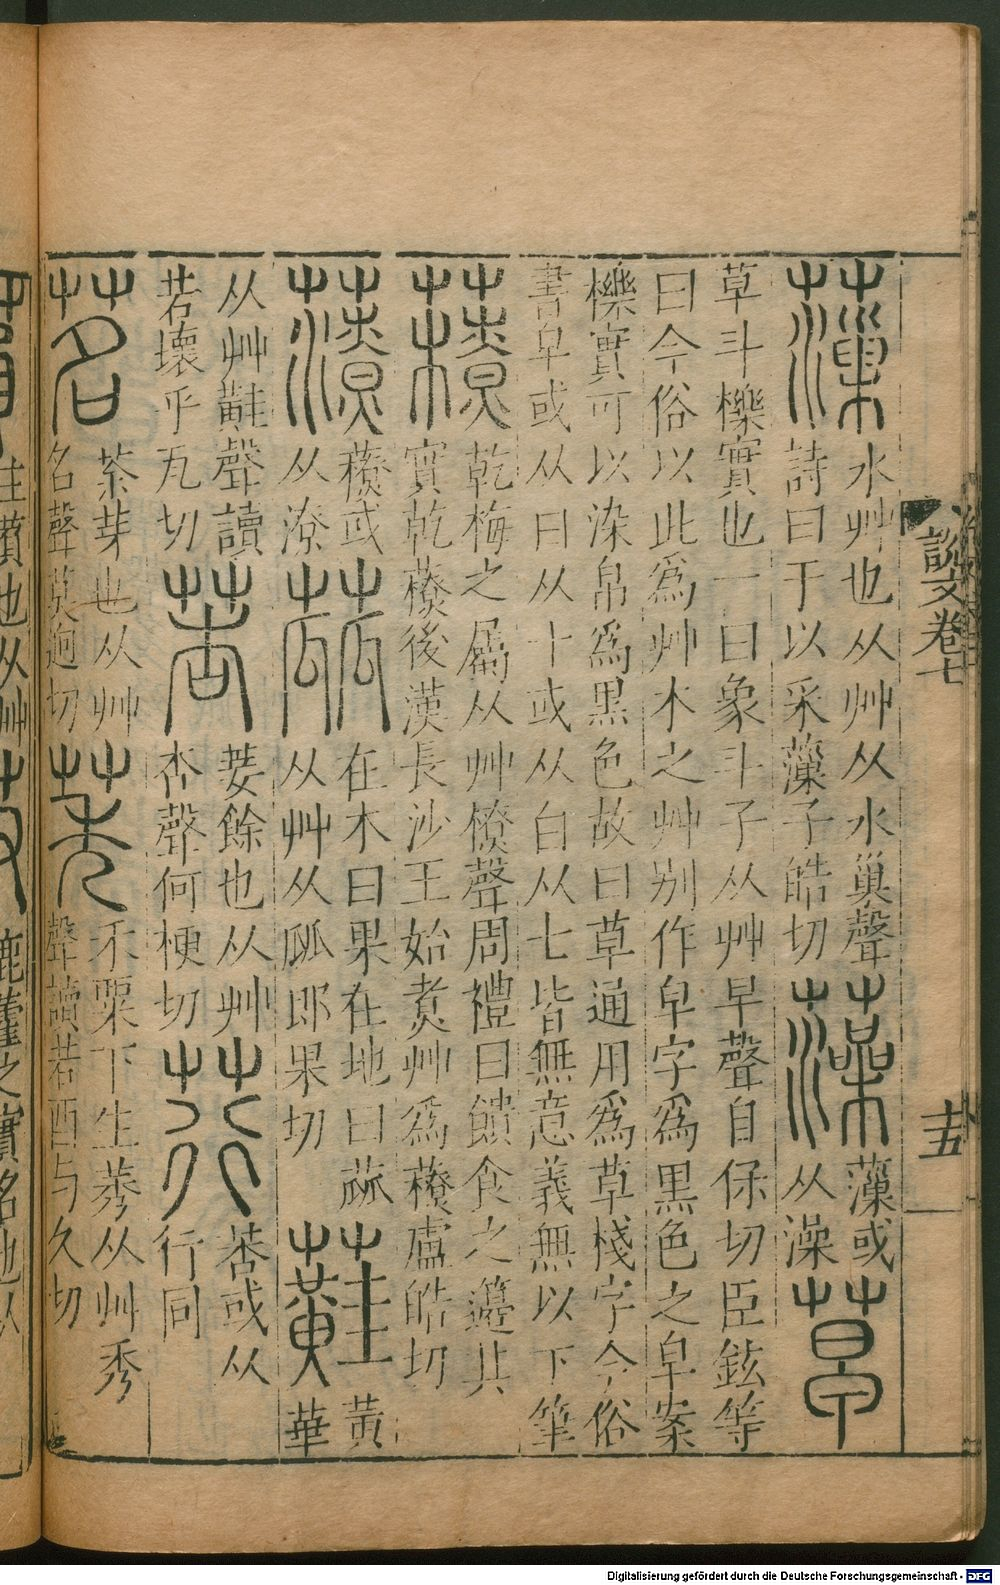 說文卷七
十五
薻 水艸也从艸从水巢聲
詩曰于以采薻子皓切
藻 薻或
从澡
草
草斗櫟實也一曰象斗子从艸早聲自保切臣鉉等
曰今俗以此爲艸木之艸别作皁字爲黑色之皁案
櫟實可以染帛爲黑色故曰草通用爲草棧字今俗
書皁或从曰从十或从白从七皆無意義無以下筆
䕩 乾梅之屬从艸橑聲周禮曰饋食之籩其
實乾䕩後漢長沙王始煮艸爲䕩盧皓切
䕩或
从潦
蓏 在木曰果在地曰蓏
从艸从㼌郎果切
蘳 黃
華
从艸黊聲讀
若壞乎瓦切
莕 菨餘也从艸
杏聲何梗切
荇 莕或从
行同
茗 荼芽也从艸
名聲莫迥切
莠 禾粟下生莠从艸秀
聲讀若酉与久切
也从艸
鹿藿之實名也从
Digitalisierung gefördert durch die Deutsche Forschungsgemeinschaft - DFG